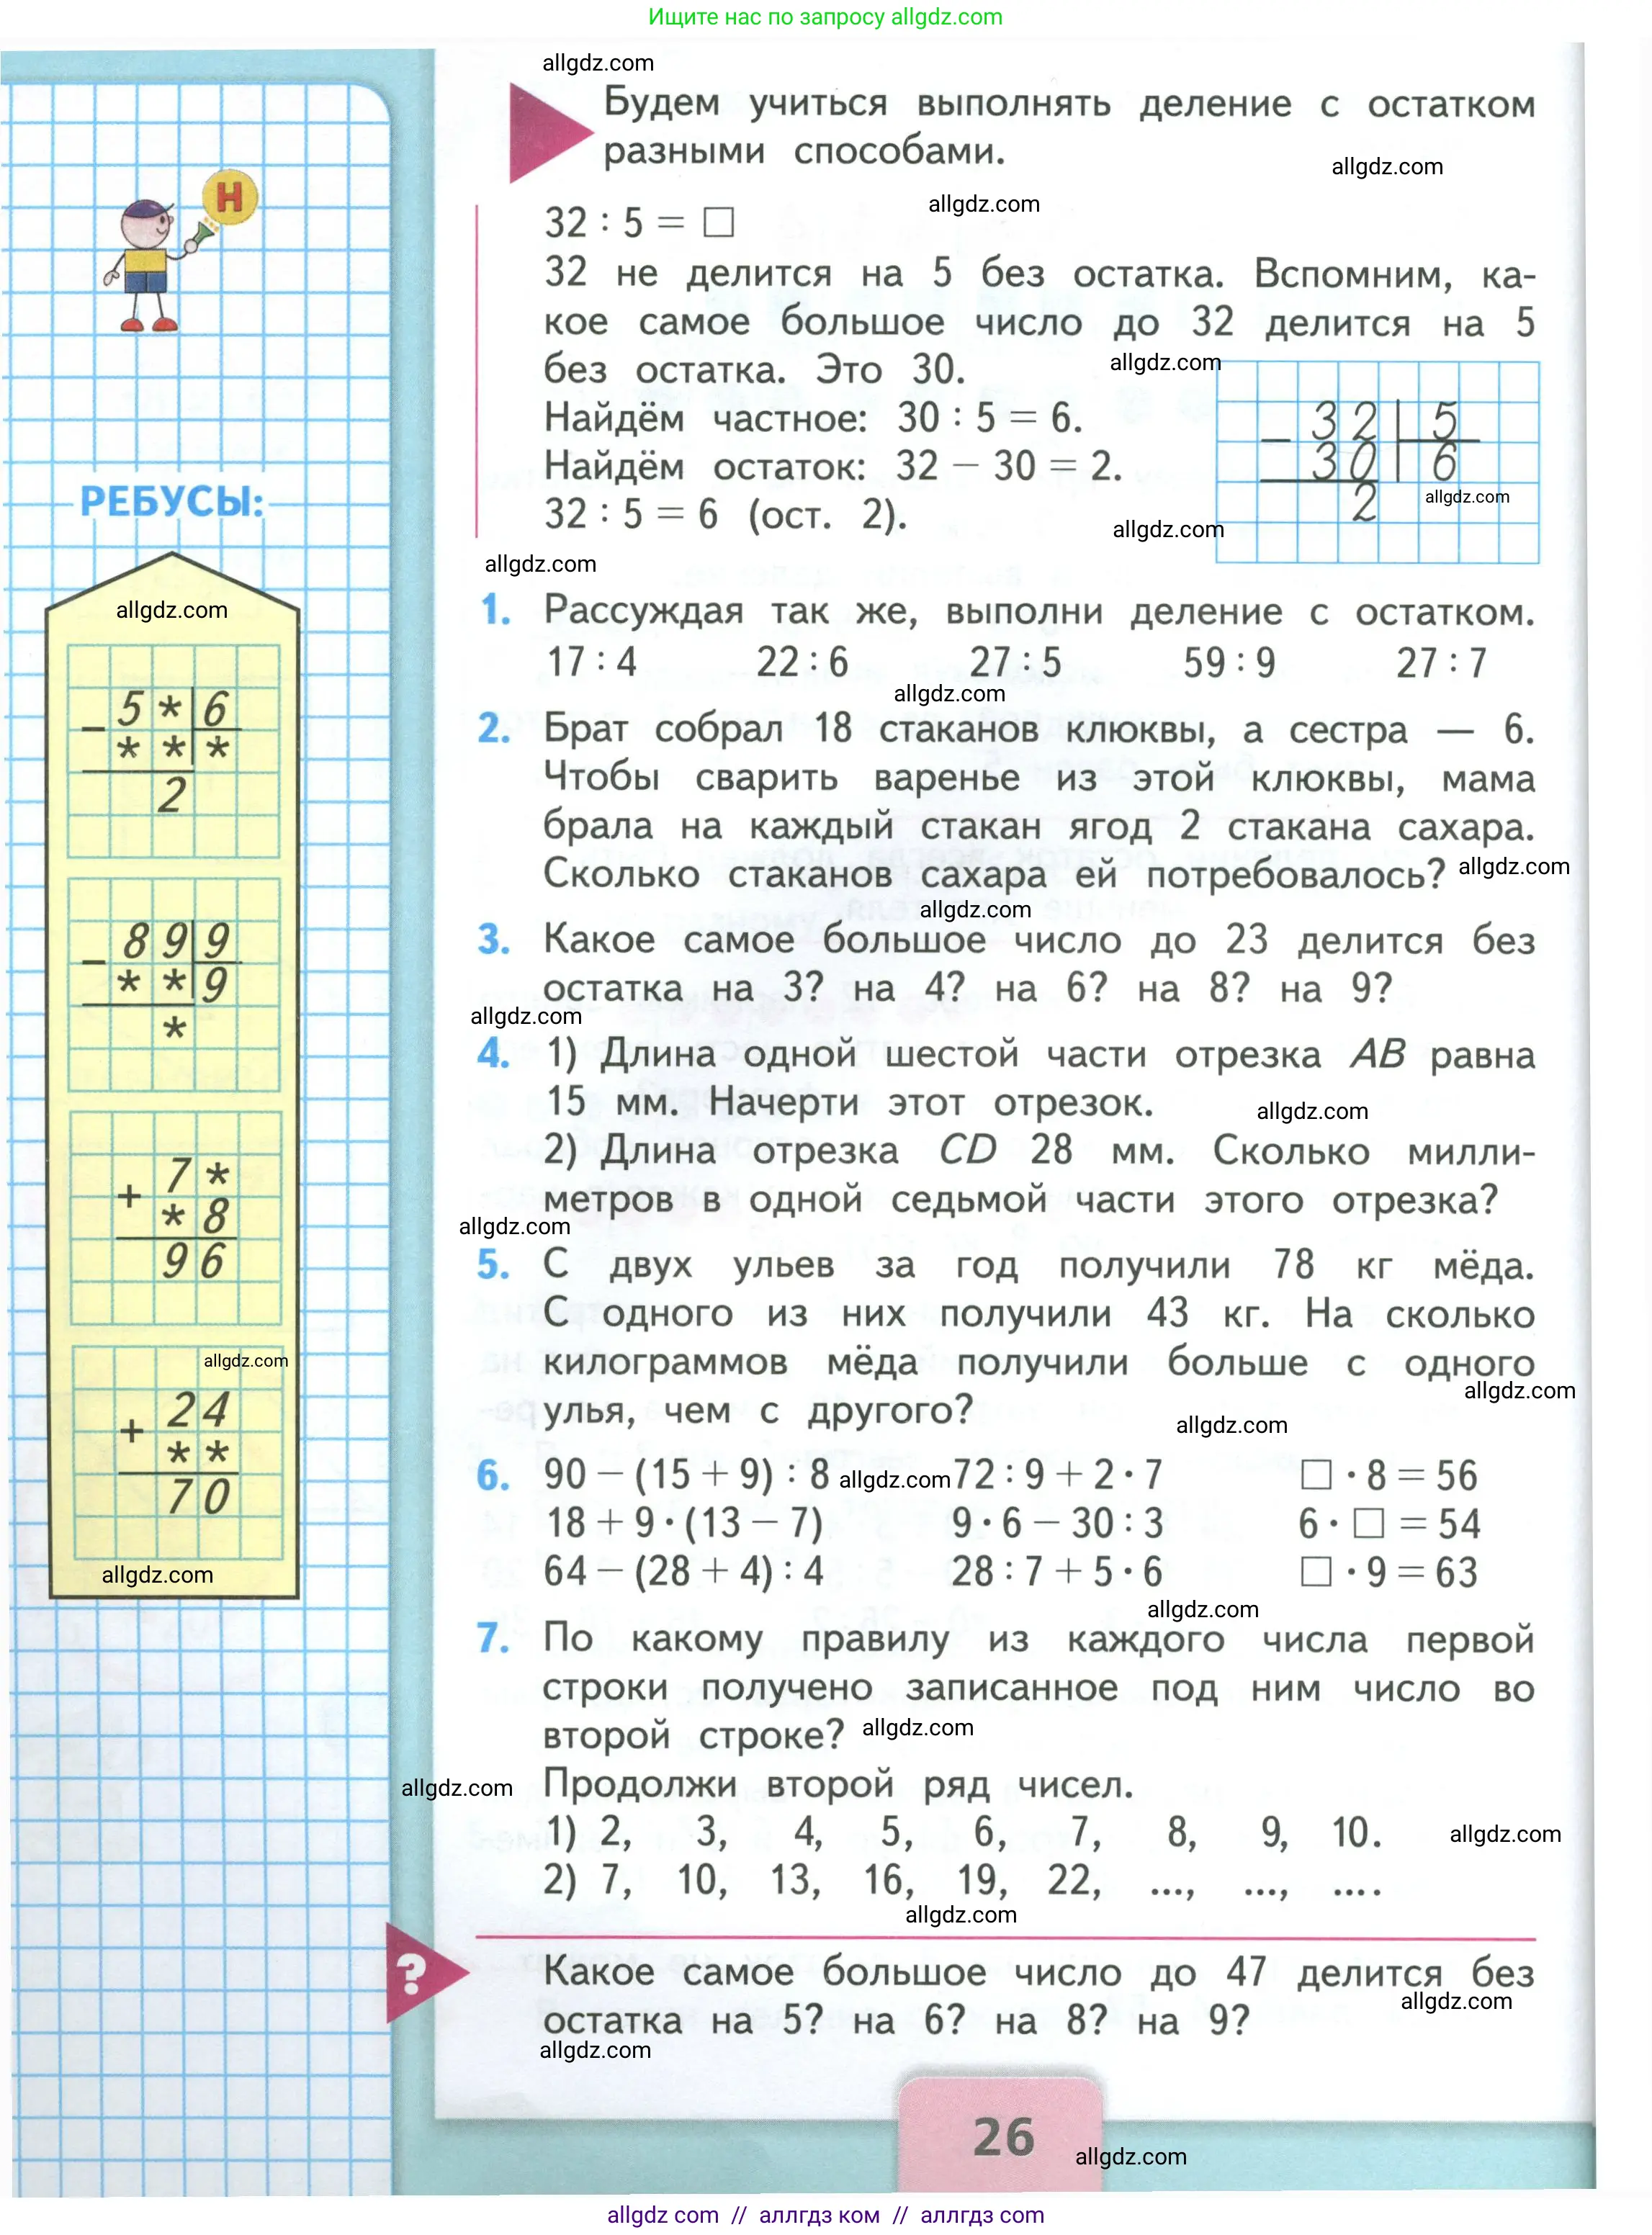 Ищите нас по запросу allgdz.com
allgdz.com
Будем учиться выполнять деление с остатком
разными способами.
allgdz.com
allgdz.com
Н
32 : 5 = □
32 не делится на 5 без остатка. Вспомним, ка-
кое самое большое число до 32 делится на 5
без остатка. Это 30.
allgdz.com
Найдём частное: 30 : 5 = 6.
Найдём остаток: 32 − 30 = 2.
32 : 5 = 6 (ост. 2).
− 32 | 5
30 | 6
2
allgdz.com
allgdz.com
allgdz.com
РЕБУСЫ:
allgdz.com
− 5 * | 6
* * | *
2
− 8 9 | 9
* * | 9
*
+ 7 *
* 8
9 6
allgdz.com
+ 2 4
* *
7 0
allgdz.com
1. Рассуждая так же, выполни деление с остатком.
17 : 4 22 : 6 27 : 5 59 : 9 27 : 7
allgdz.com
2. Брат собрал 18 стаканов клюквы, а сестра — 6.
Чтобы сварить варенье из этой клюквы, мама
брала на каждый стакан ягод 2 стакана сахара.
Сколько стаканов сахара ей потребовалось? allgdz.com
allgdz.com
3. Какое самое большое число до 23 делится без
остатка на 3? на 4? на 6? на 8? на 9?
allgdz.com
4. 1) Длина одной шестой части отрезка AB равна
15 мм. Начерти этот отрезок.
allgdz.com
2) Длина отрезка CD 28 мм. Сколько милли-
метров в одной седьмой части этого отрезка?
allgdz.com
5. С двух ульев за год получили 78 кг мёда.
С одного из них получили 43 кг. На сколько
килограммов мёда получили больше с одного
allgdz.com
улья, чем с другого?
allgdz.com
6. 90 − (15 + 9) : 8 allgdz.com 72 : 9 + 2 · 7 □ · 8 = 56
18 + 9 · (13 − 7) 9 · 6 − 30 : 3 6 · □ = 54
64 − (28 + 4) : 4 28 : 7 + 5 · 6 □ · 9 = 63
allgdz.com
7. По какому правилу из каждого числа первой
строки получено записанное под ним число во
второй строке? allgdz.com
allgdz.com
Продолжи второй ряд чисел.
1) 2, 3, 4, 5, 6, 7, 8, 9, 10. allgdz.com
2) 7, 10, 13, 16, 19, 22, ..., ..., ... .
allgdz.com
?
Какое самое большое число до 47 делится без
allgdz.com
остатка на 5? на 6? на 8? на 9?
allgdz.com
26
allgdz.com
allgdz.com // аллгдз ком // аллгдз com